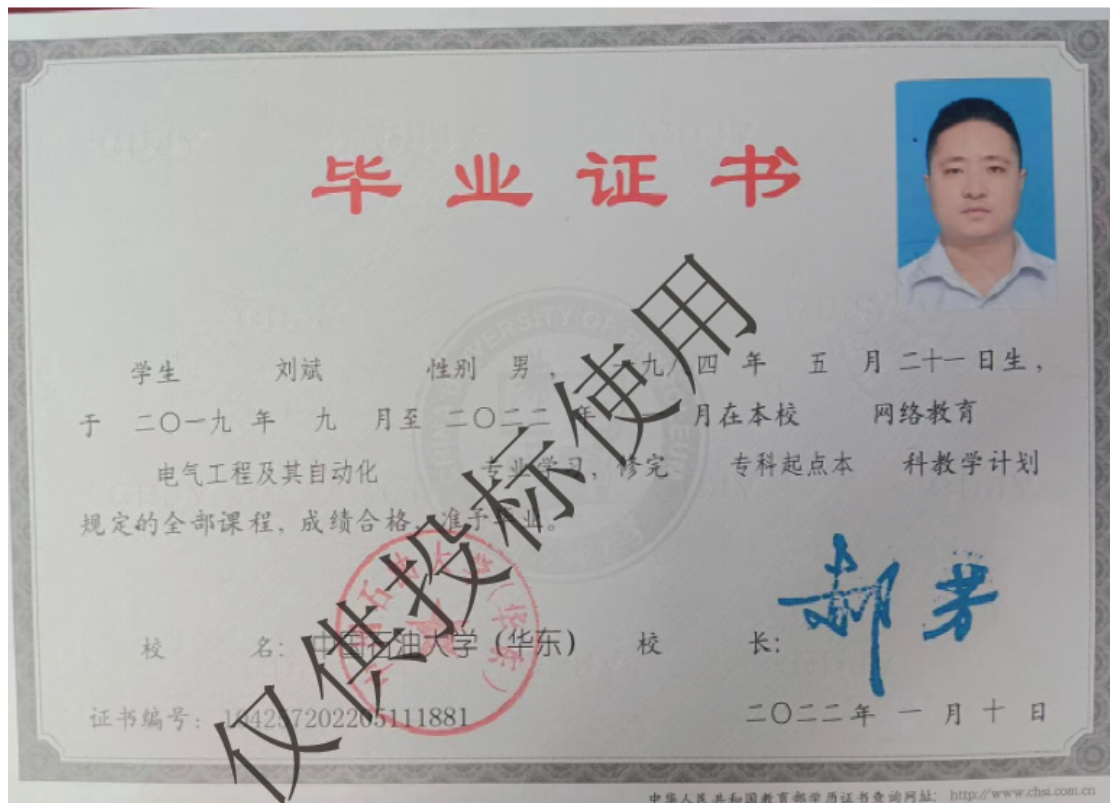 毕业证书
学生 刘斌 性别 男 ， 一九八四 年 五 月 二十一 日生，
于 二〇一九 年 九 月至 二〇二二 年 一 月在本校 网络教育
电气工程及其自动化 专业学习，修完 专科起点本 科教学计划
规定的全部课程，成绩合格，准予毕业。
校 名：中国石油大学（华东） 校 长：郝芳
证书编号：104257202205111881
二〇二二年 一 月 十 日
中华人民共和国教育部学历证书查询网址：http://www.chsi.com.cn
仅供投标使用